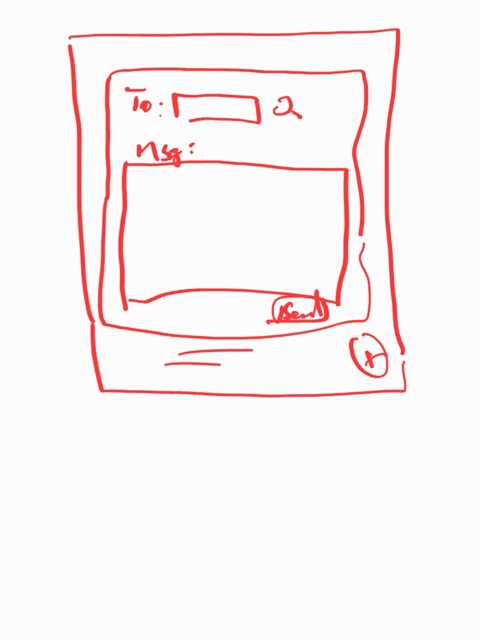 To:
Msg:
Send